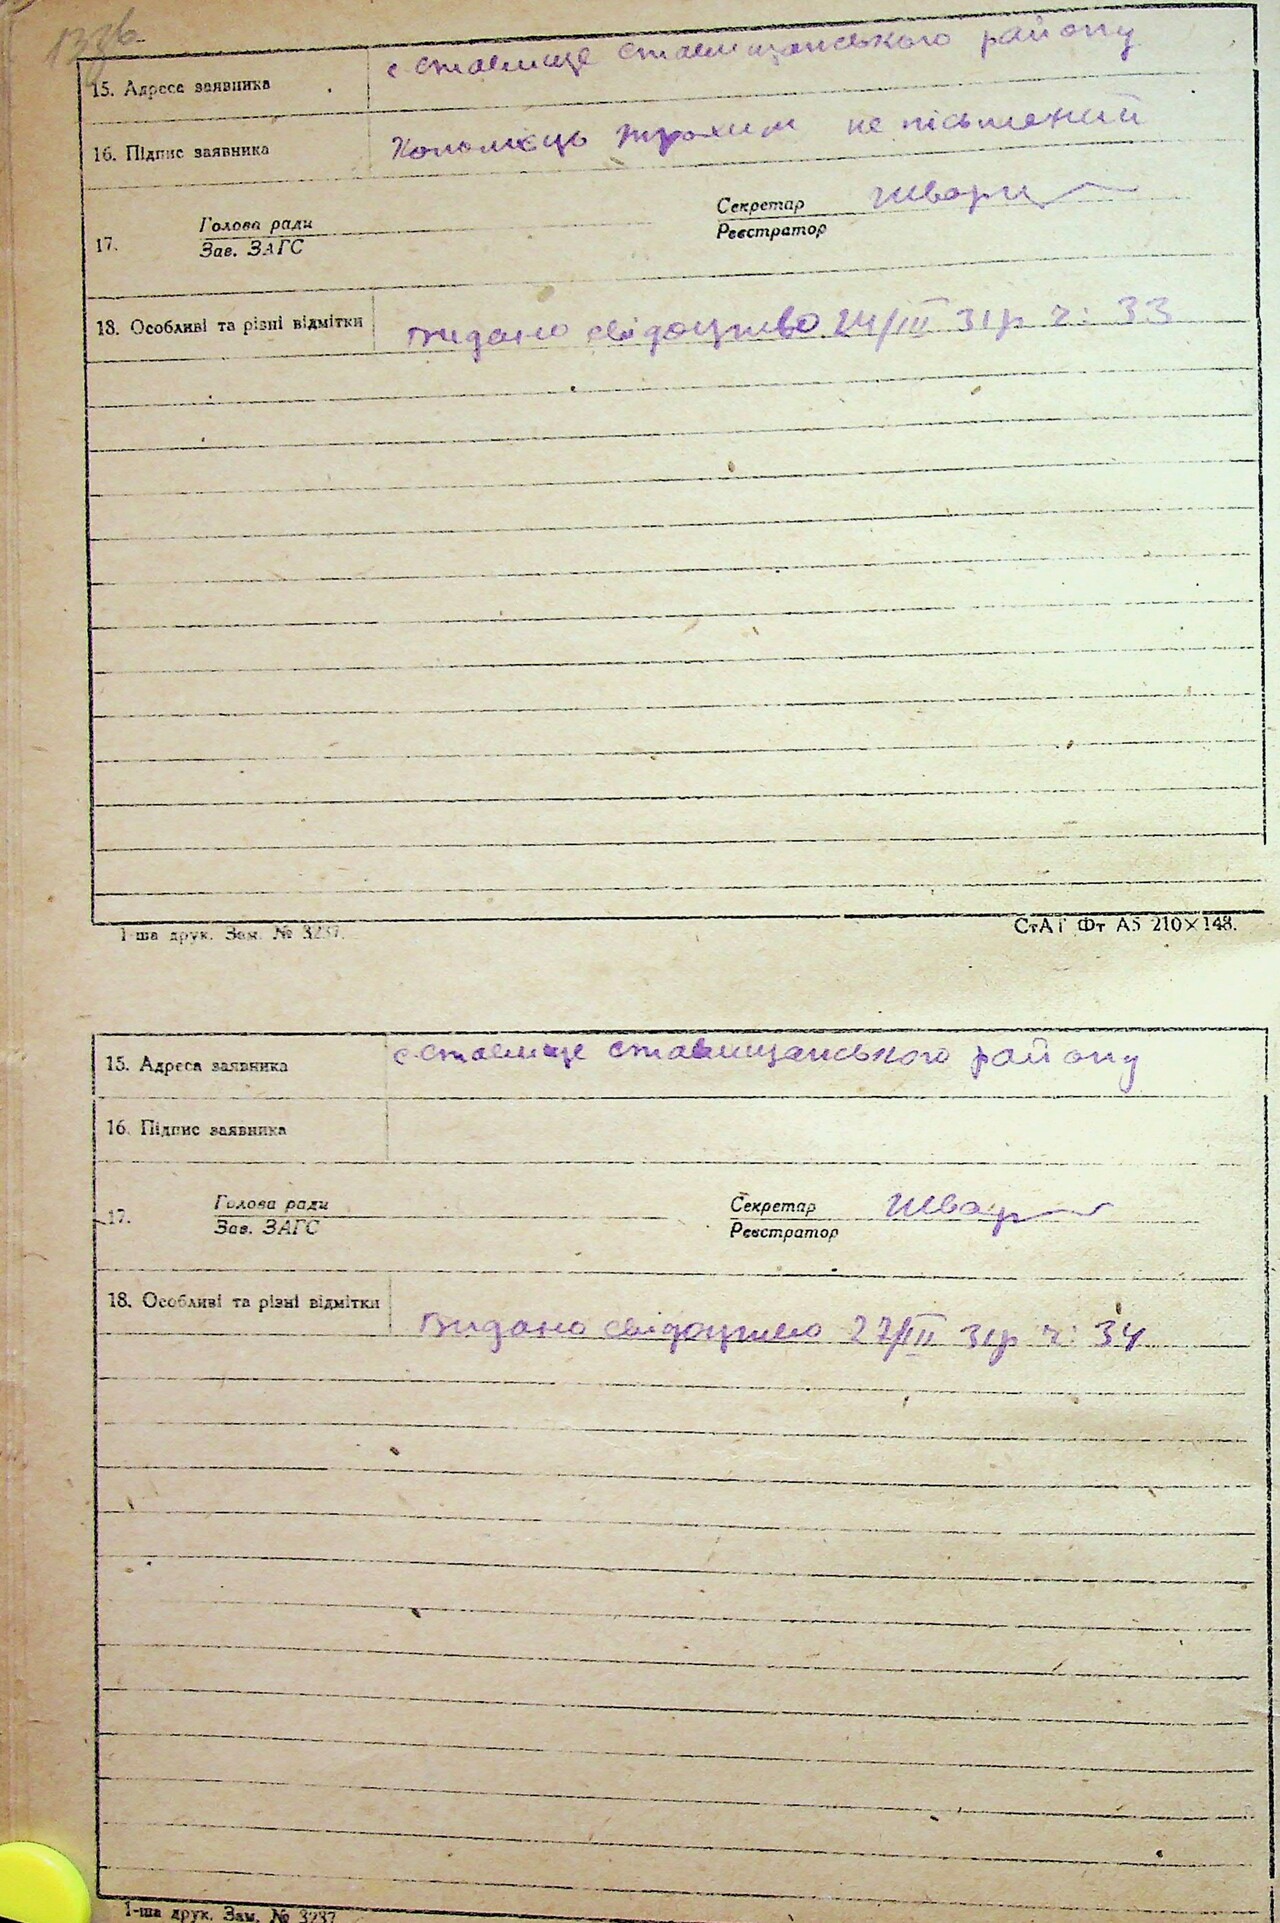 133б
15. Адреса заявника с Ставище Ставищанського району
16. Підпис заявника Коломієць Трохим не письмений
Секретар Швары
17. Голова ради
Зав. ЗАГС Реєстратор
18. Особливі та різні відмітки Видано свідоцтво 24/III 31р ч: 33
1-ша друк. Зам. № 3237. СтАТ Фт А5 210×148.
15. Адреса заявника с Ставище Ставищанського району
16. Підпис заявника
17. Голова ради Секретар
Зав. ЗАГС Реєстратор
18. Особливі та різні відмітки Видано свідоцтво 27/III 31р ч: 34
1-ша друк. Зам. № 3237